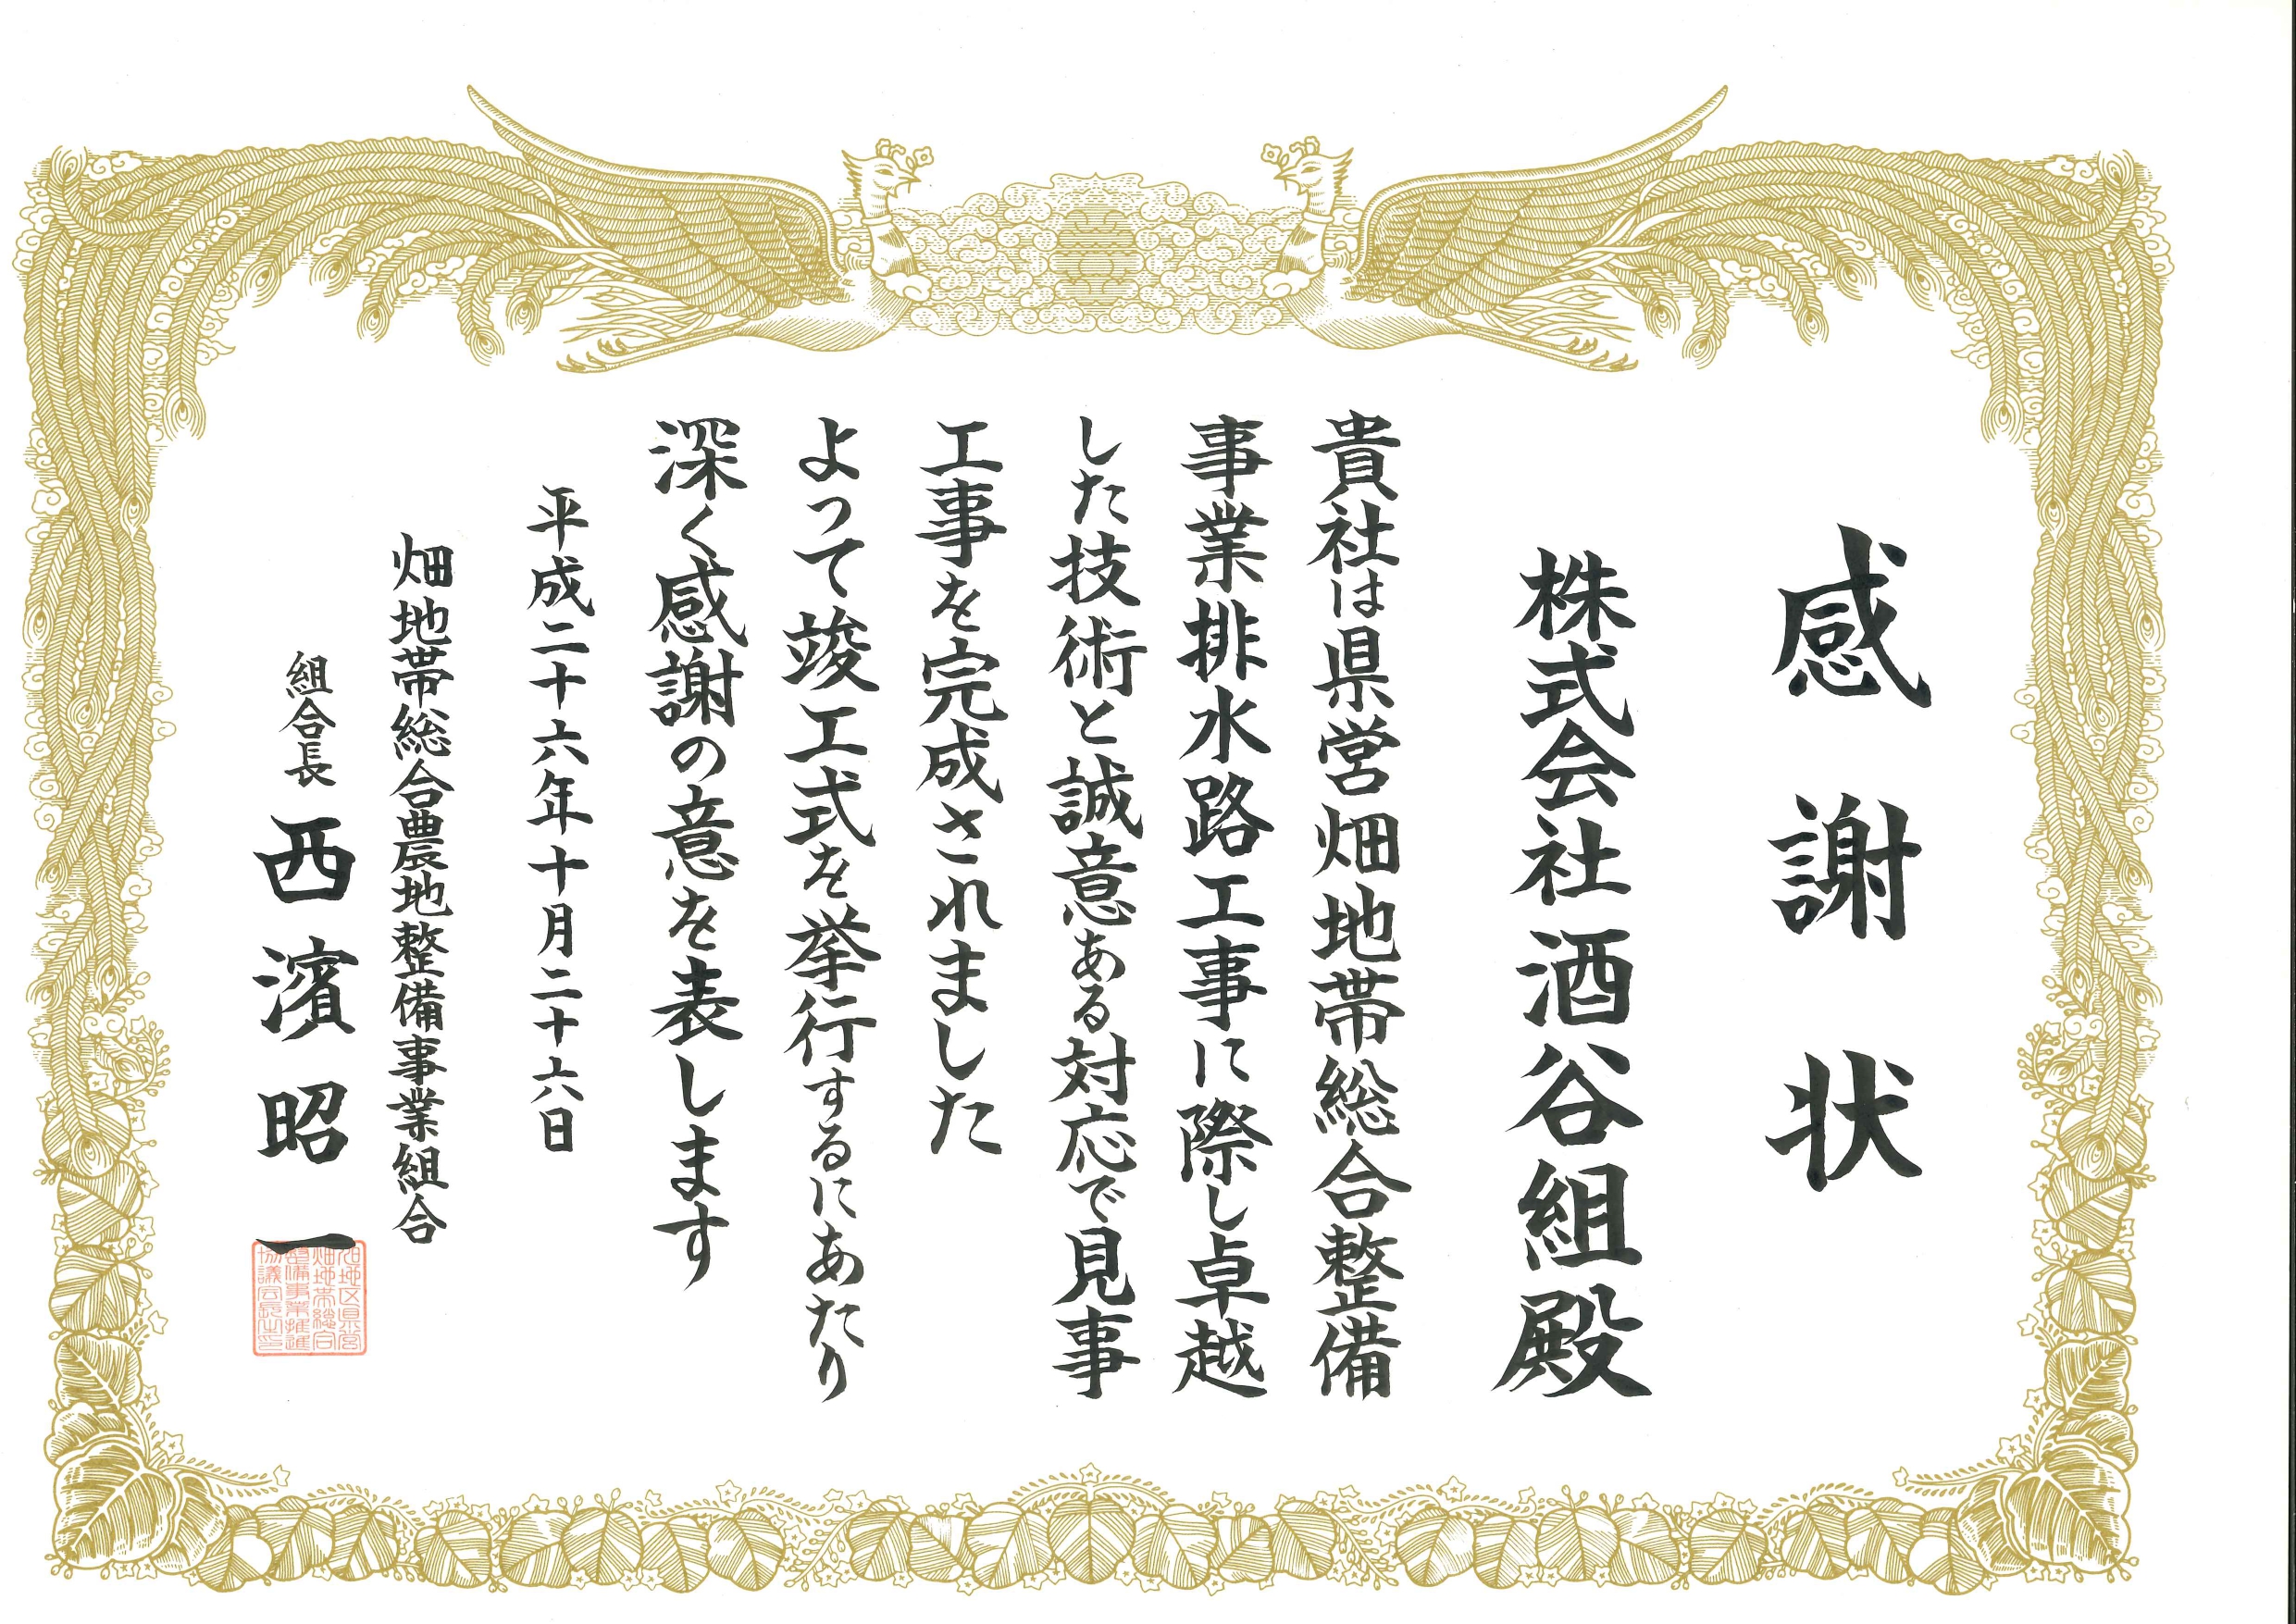 感謝状
株式会社酒谷組殿
貴社は県営畑地帯総合整備
事業排水路工事に際し卓越
した技術と誠意ある対応で見事
工事を完成されました
よって竣工式を挙行するにあたり
深く感謝の意を表します
平成二十六年十月二十六日
畑地帯総合農地整備事業組合
組合長 西濱昭一
畑地帯総合
整備事業推進
協議会長之印